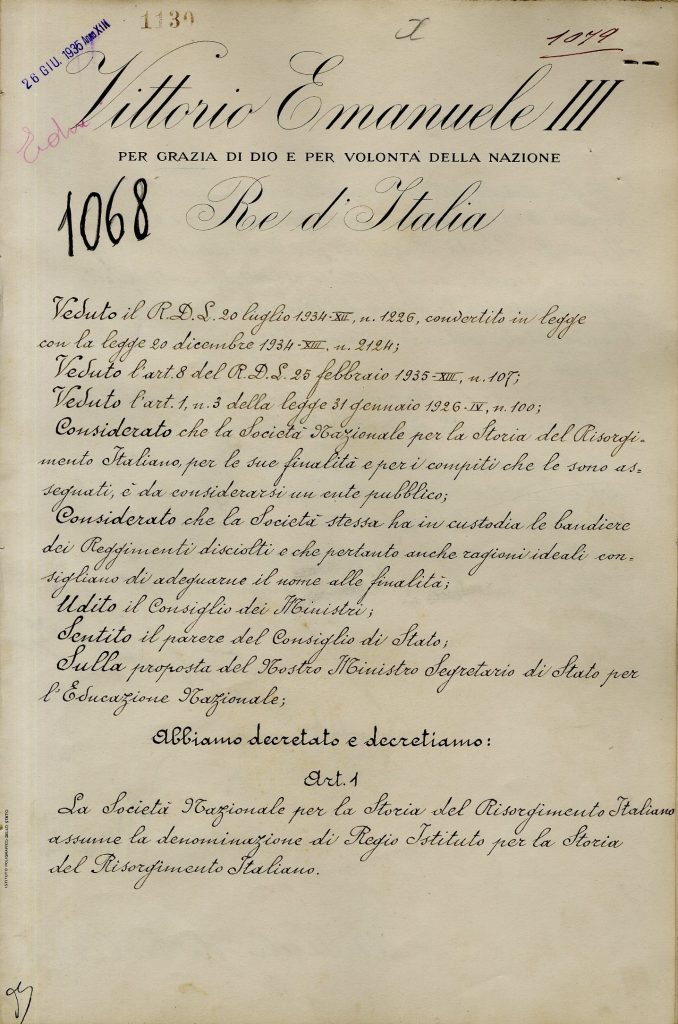 26 GIU. 1935 Anno XIII
1130
1079
Vittorio Emanuele III
PER GRAZIA DI DIO E PER VOLONTÀ DELLA NAZIONE
1068
Re d'Italia
Veduto il R.D.L. 20 luglio 1934-XII, n. 1226, convertito in legge
con la legge 20 dicembre 1934-XIII, n. 2124;
Veduto l'art. 8 del R.D.L. 25 febbraio 1935-XIII, n. 107;
Veduto l'art. 1, n. 3 della legge 31 gennaio 1926-IV, n. 100;
Considerato che la Società Nazionale per la Storia del Risorgi-
mento Italiano, per le sue finalità e per i compiti che le sono as=
segnati, è da considerarsi un ente pubblico;
Considerato che la Società stessa ha in custodia le bandiere
dei Reggimenti disciolti e che pertanto anche ragioni ideali con=
sigliano di adeguarne il nome alle finalità;
Udito il Consiglio dei Ministri;
Sentito il parere del Consiglio di Stato;
Sulla proposta del Nostro Ministro Segretario di Stato per
l'Educazione Nazionale;
Abbiamo decretato e decretiamo:
Art. 1
La Società Nazionale per la Storia del Risorgimento Italiano
assume la denominazione di Regio Istituto per la Storia
del Risorgimento Italiano.